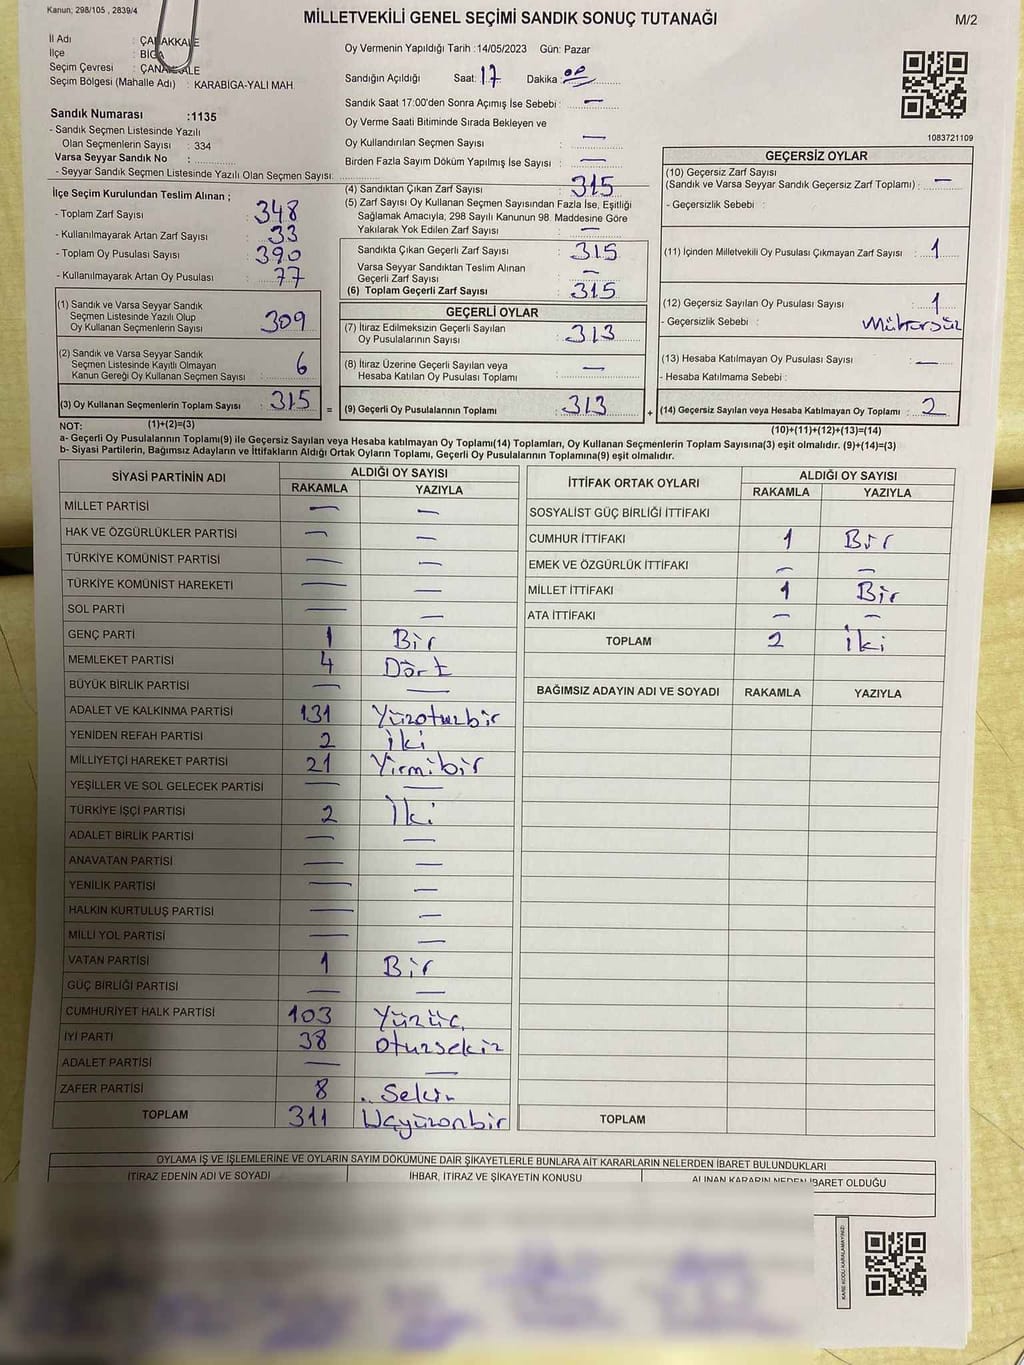 Kanun; 298/105 , 2839/4
MİLLETVEKİLİ GENEL SEÇİMİ SANDIK SONUÇ TUTANAĞI
M/2
İl Adı : ÇANAKKALE
İlçe : BİGA
Seçim Çevresi : ÇANAKKALE
Seçim Bölgesi (Mahalle Adı) : KARABIGA-YALI MAH.
Sandık Numarası :1135
- Sandık Seçmen Listesinde Yazılı
Olan Seçmenlerin Sayısı : 334
Varsa Seyyar Sandık No :
- Seyyar Sandık Seçmen Listesinde Yazılı Olan Seçmen Sayısı:
Oy Vermenin Yapıldığı Tarih :14/05/2023 Gün: Pazar
Sandığın Açıldığı Saat: 17 Dakika: 00
Sandık Saat 17:00'den Sonra Açımış İse Sebebi : —
Oy Verme Saati Bitiminde Sırada Bekleyen ve
Oy Kullandırılan Seçmen Sayısı : —
Birden Fazla Sayım Döküm Yapılmış İse Sayısı : —
1083721109
İlçe Seçim Kurulundan Teslim Alınan ;
- Toplam Zarf Sayısı : 348
- Kullanılmayarak Artan Zarf Sayısı : 33
- Toplam Oy Pusulası Sayısı : 390
- Kullanılmayarak Artan Oy Pusulası : 77
(1) Sandık ve Varsa Seyyar Sandık
Seçmen Listesinde Yazılı Olup
Oy Kullanan Seçmenlerin Sayısı : 309
(2) Sandık ve Varsa Seyyar Sandık
Seçmen Listesinde Kayıtlı Olmayan
Kanun Gereği Oy Kullanan Seçmen Sayısı : 6
(3) Oy Kullanan Seçmenlerin Toplam Sayısı : 315 =
(4) Sandıktan Çıkan Zarf Sayısı : 315
(5) Zarf Sayısı Oy Kullanan Seçmen Sayısından Fazla İse, Eşitliği
Sağlamak Amacıyla, 298 Sayılı Kanunun 98. Maddesine Göre
Yakılarak Yok Edilen Zarf Sayısı : —
Sandıkta Çıkan Geçerli Zarf Sayısı : 315
Varsa Seyyar Sandıktan Teslim Alınan
Geçerli Zarf Sayısı : —
(6) Toplam Geçerli Zarf Sayısı : 315
GEÇERLİ OYLAR
(7) İtiraz Edilmeksizin Geçerli Sayılan
Oy Pusulalarının Sayısı : 313
(8) İtiraz Üzerine Geçerli Sayılan veya
Hesaba Katılan Oy Pusulası Toplamı : —
(9) Geçerli Oy Pusulalarının Toplamı : 313 +
GEÇERSİZ OYLAR
(10) Geçersiz Zarf Sayısı
(Sandık ve Varsa Seyyar Sandık Geçersiz Zarf Toplamı) : —
- Geçersizlik Sebebi :
(11) İçinden Milletvekili Oy Pusulası Çıkmayan Zarf Sayısı : 1
(12) Geçersiz Sayılan Oy Pusulası Sayısı : 1
- Geçersizlik Sebebi : Mühürsüz
(13) Hesaba Katılmayan Oy Pusulası Sayısı : —
- Hesaba Katılmama Sebebi :
(14) Geçersiz Sayılan veya Hesaba Katılmayan Oy Toplamı : 2
NOT: (1)+(2)=(3)
(10)+(11)+(12)+(13)=(14)
a- Geçerli Oy Pusulalarının Toplamı(9) ile Geçersiz Sayılan veya Hesaba katılmayan Oy Toplamı(14) Toplamları, Oy Kullanan Seçmenlerin Toplam Sayısına(3) eşit olmalıdır. (9)+(14)=(3)
b- Siyasi Partilerin, Bağımsız Adayların ve İttifakların Aldığı Ortak Oyların Toplamı, Geçerli Oy Pusulalarının Toplamına(9) eşit olmalıdır.
SİYASİ PARTİNİN ADI ALDIĞI OY SAYISI
RAKAMLA YAZIYLA
MİLLET PARTİSİ — —
HAK VE ÖZGÜRLÜKLER PARTİSİ — —
TÜRKİYE KOMÜNİST PARTİSİ — —
TÜRKİYE KOMÜNİST HAREKETİ — —
SOL PARTİ — —
GENÇ PARTİ 1 Bir
MEMLEKET PARTİSİ 4 Dört
BÜYÜK BİRLİK PARTİSİ — —
ADALET VE KALKINMA PARTİSİ 131 Yüzotuzbir
YENİDEN REFAH PARTİSİ 2 İki
MİLLİYETÇİ HAREKET PARTİSİ 21 Yirmibir
YEŞİLLER VE SOL GELECEK PARTİSİ — —
TÜRKİYE İŞÇİ PARTİSİ 2 İki
ADALET BİRLİK PARTİSİ — —
ANAVATAN PARTİSİ — —
YENİLİK PARTİSİ — —
HALKIN KURTULUŞ PARTİSİ — —
MİLLİ YOL PARTİSİ — —
VATAN PARTİSİ 1 Bir
GÜÇ BİRLİĞİ PARTİSİ — —
CUMHURİYET HALK PARTİSİ 103 Yüzüç
İYİ PARTİ 38 Otuzsekiz
ADALET PARTİSİ — —
ZAFER PARTİSİ 8 Sekiz
TOPLAM 311 Üçyüzonbir
İTTİFAK ORTAK OYLARI ALDIĞI OY SAYISI
RAKAMLA YAZIYLA
SOSYALİST GÜÇ BİRLİĞİ İTTİFAKI
CUMHUR İTTİFAKI 1 Bir
EMEK VE ÖZGÜRLÜK İTTİFAKI — —
MİLLET İTTİFAKI 1 Bir
ATA İTTİFAKI — —
TOPLAM 2 İki
BAĞIMSIZ ADAYIN ADI VE SOYADI RAKAMLA YAZIYLA
TOPLAM
OYLAMA İŞ VE İŞLEMLERİNE VE OYLARIN SAYIM DÖKÜMÜNE DAİR ŞİKAYETLERLE BUNLARA AİT KARARLARIN NELERDEN İBARET BULUNDUKLARI
İTİRAZ EDENİN ADI VE SOYADI İHBAR, İTİRAZ VE ŞİKAYETİN KONUSU ALINAN KARARIN NEDEN İBARET OLDUĞU
KARE KODU KARALAMAYINIZ!